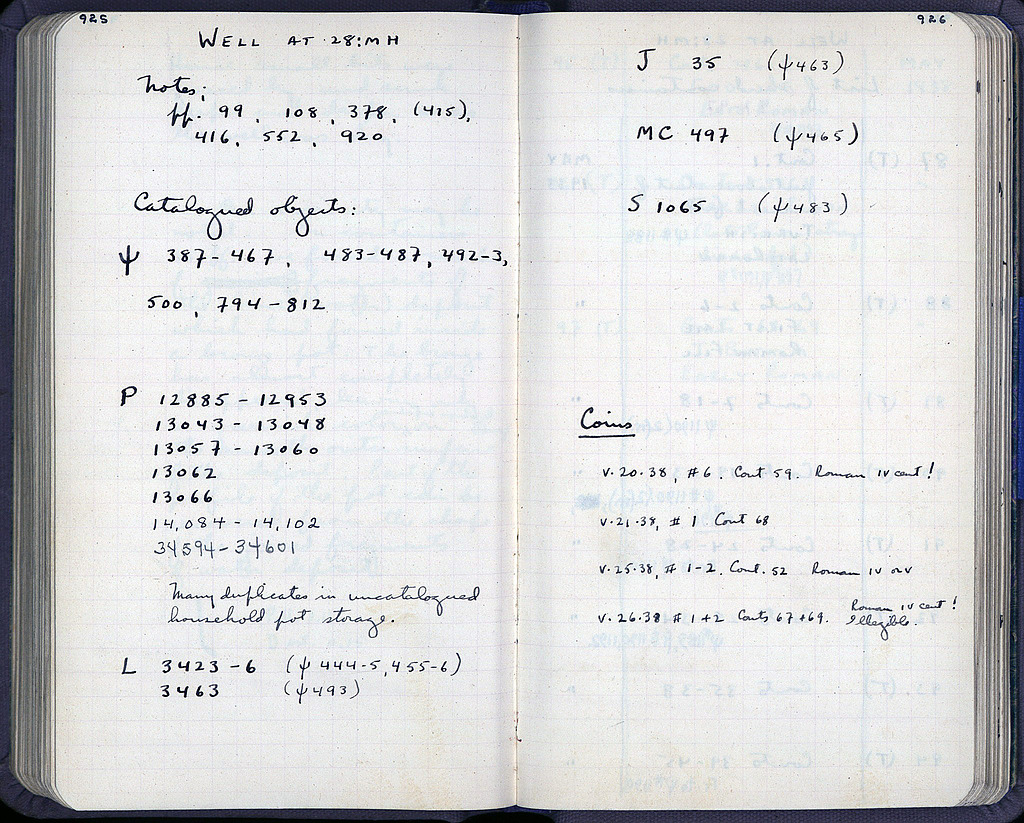 925
WELL AT 28:MH
Notes:
pp. 99, 108, 378, (415),
416, 552, 920
Catalogued objects:
Ψ 387-467, 483-487, 492-3,
500, 794-812
P 12885-12953
13043-13048
13057-13060
13062
13066
14,084-14,102
34594-34601
Many duplicates in uncatalogued
household pot storage.
L 3423-6 (Ψ 444-5, 455-6)
3463 (Ψ493)
926
J 35 (Ψ463)
MC 497 (Ψ465)
S 1065 (Ψ483)
Coins
V.20.38, #6. Cont 59. Roman IV cent!
V.21.38, # 1 Cont 68
V.25.38, # 1-2. Cont. 52 Roman IV or V
V.26.38 # 1+2 Conts 67+69. Roman IV cent!
Illegible.